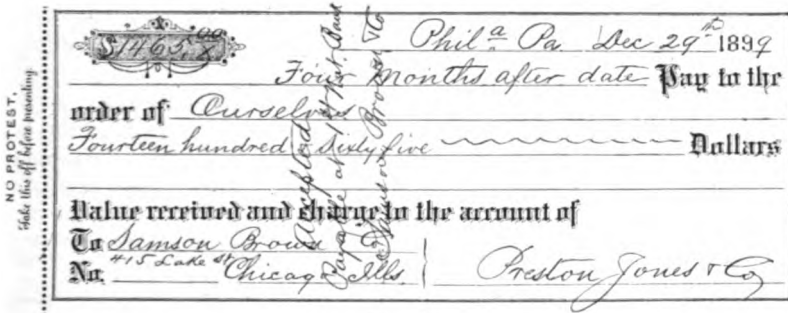 NO PROTEST.
Take this off before presenting.
$1465.00
Phila Pa Dec 29th 1899
Four months after date Pay to the
order of Ourselves
Fourteen hundred & sixty five Dollars
Value received and charge to the account of
To Samson Brown
No. 415 Lake St Chicago Ills
Preston Jones & Co
Accepted
Payable at 1st Nat. Bank
Samson Brown & Co